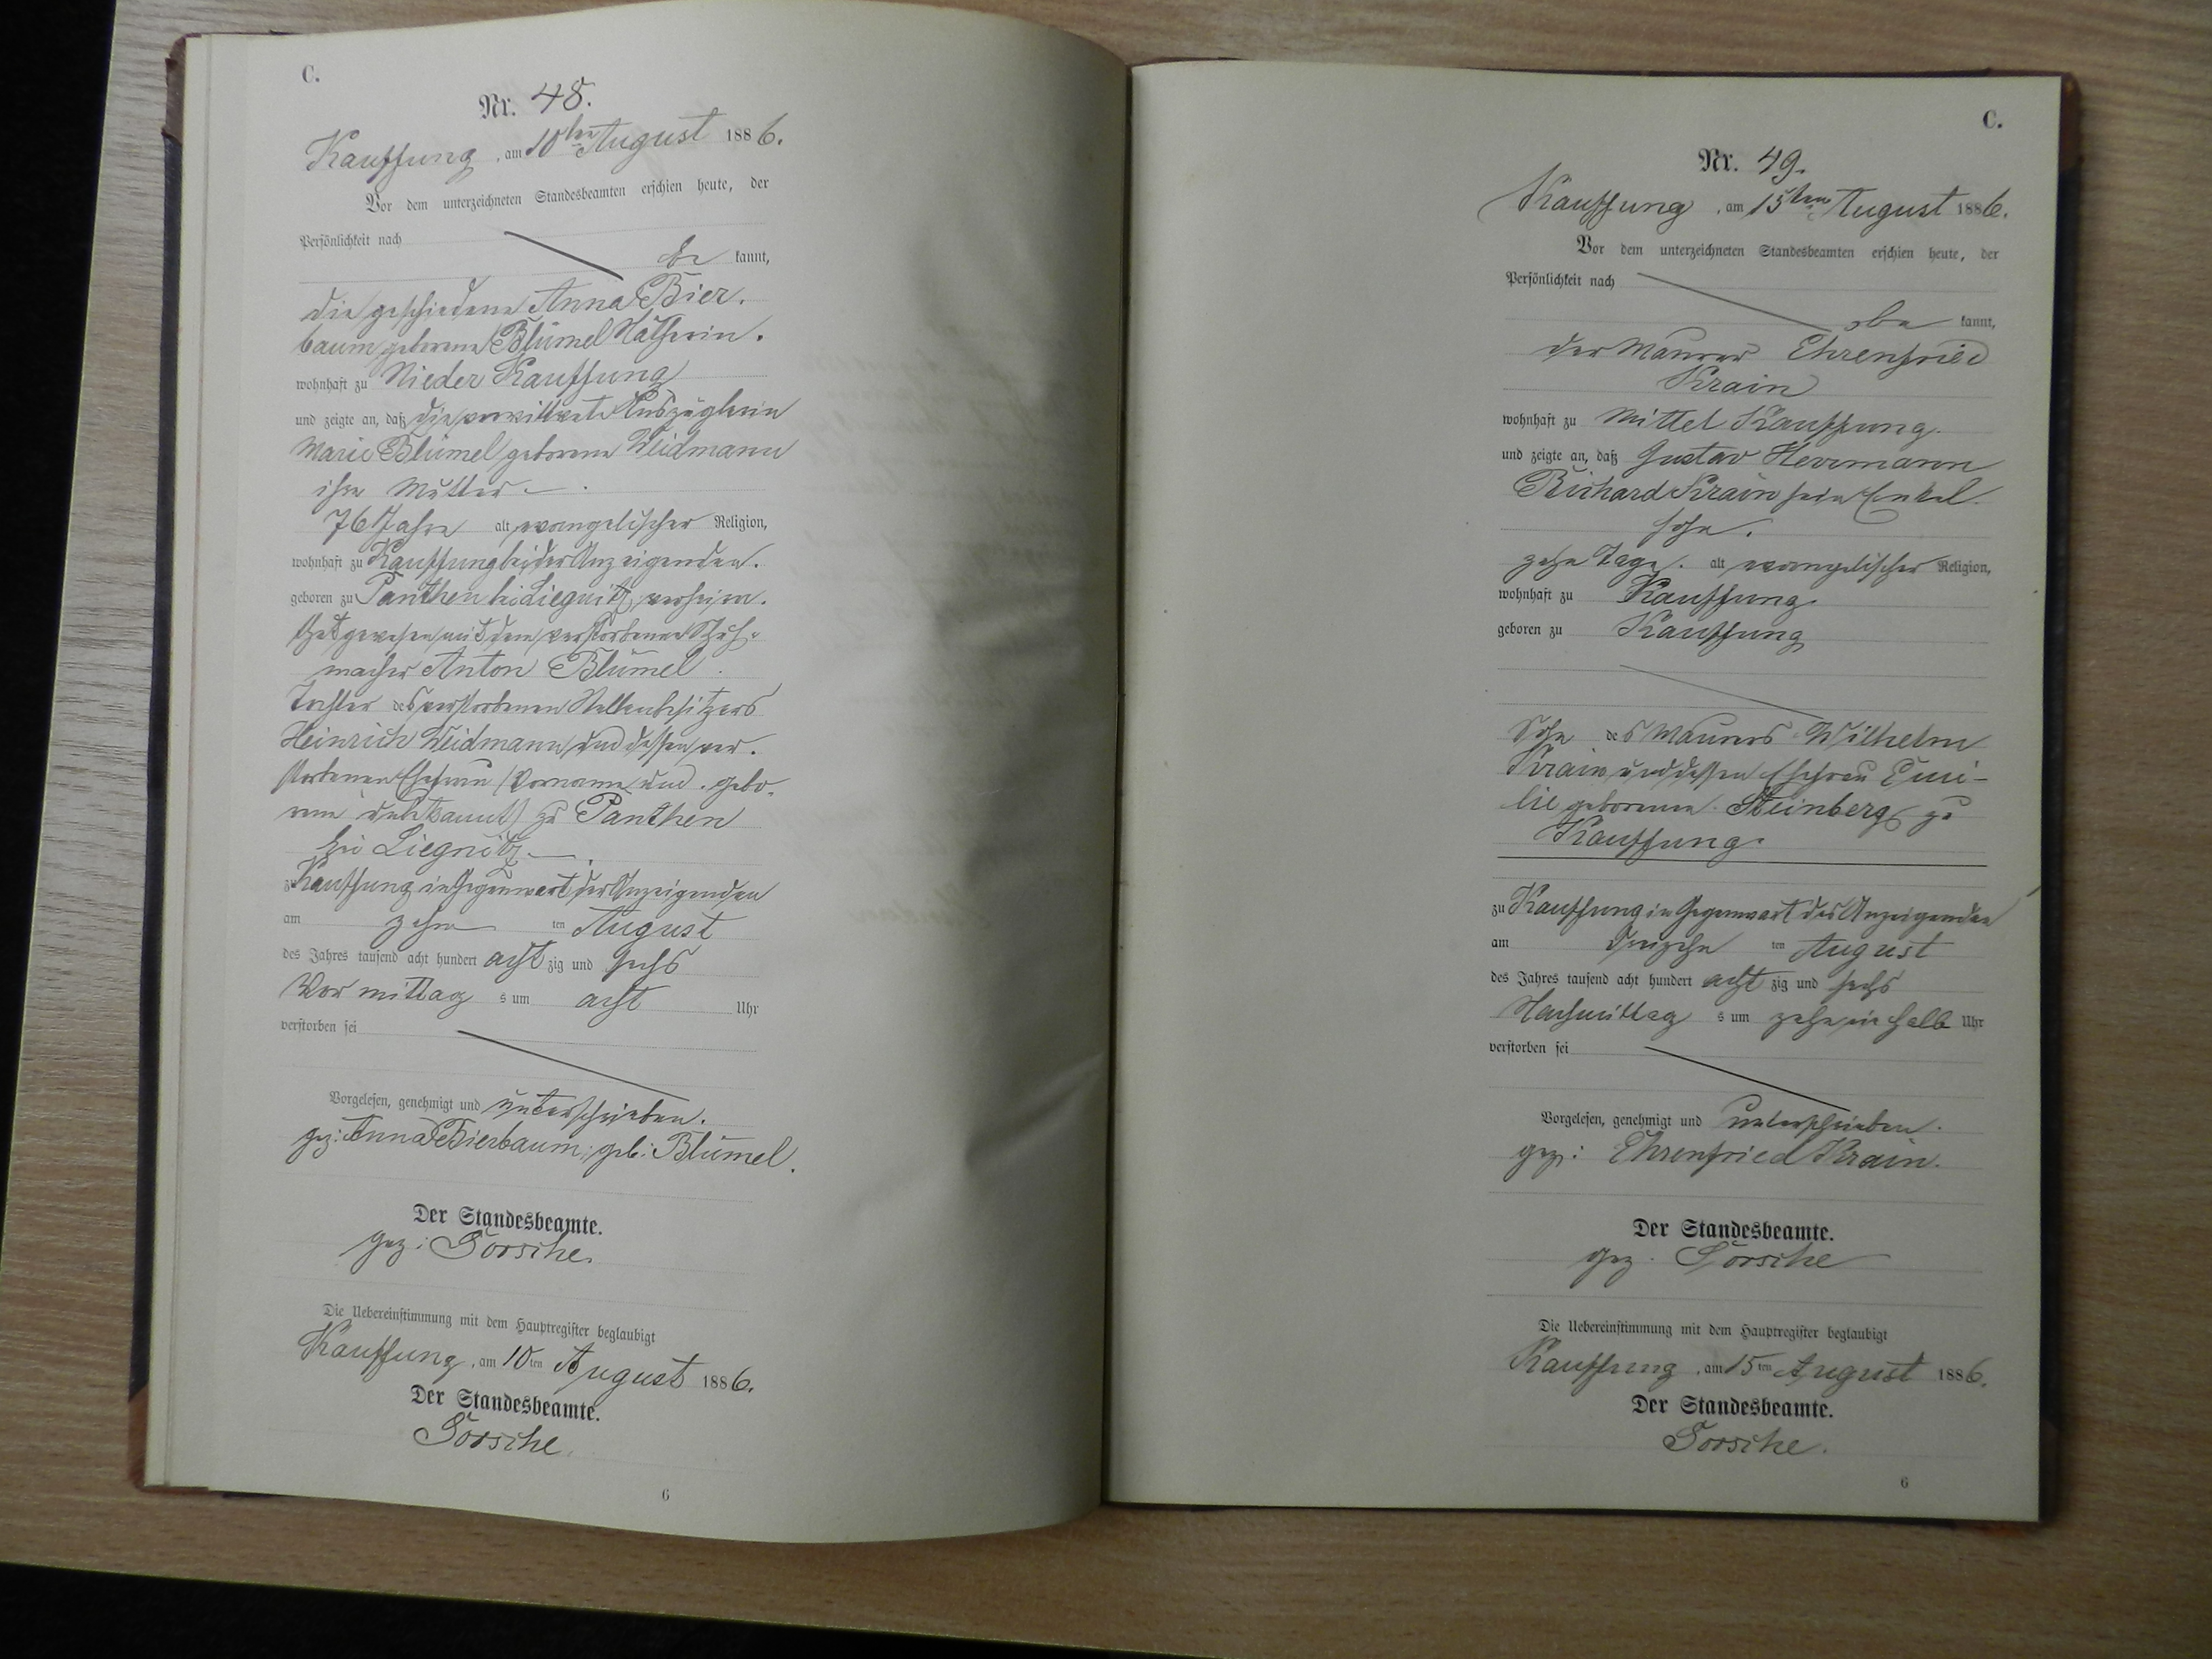 C.
Nr. 48.
Kauffung, am 10ten August 1886.
Vor dem unterzeichneten Standesbeamten erschien heute, der
Persönlichkeit nach
be kannt,
die geschiedene Anna Bier.
baum, geborene Blümel Nätherin.
wohnhaft zu Nieder Kauffung
und zeigte an, daß die verwittwete Auszüglerin
Marie Blümel geborene Weidmann
ihre Mutter.
76 Jahre alt, evangelischer Religion,
wohnhaft zu Kauffung bei der Anzeigenden.
geboren zu Panthen bei Liegnitz, verheira.
thet gewesen mit dem verstorbenen Schuh-
macher Anton Blümel
Tochter des verstorbenen Stellenbesitzers
Heinrich Weidmann und dessen ver.
storbenen Ehefrau (Vorname und gebo-
rene unbekannt) zu Panthen
bei Liegnitz
zu Kauffung in Gegenwart der Anzeigenden
am zehn ten August
des Jahres tausend acht hundert acht zig und sechs
Vor mittag s um acht Uhr
verstorben sei
Vorgelesen, genehmigt und unterschrieben.
gez: Anna Bierbaum, geb: Blümel.
Der Standesbeamte.
gez:
Die Uebereinstimmung mit dem Hauptregister beglaubigt
Kauffung, am 10ten August 1886.
Der Standesbeamte.
6
C.
Nr. 49.
Kauffung, am 15ten August 1886.
Vor dem unterzeichneten Standesbeamten erschien heute, der
Persönlichkeit nach
be kannt,
der Maurer Ehrenfried
Krain
wohnhaft zu Mittel Kauffung.
und zeigte an, daß Gustav Herrmann
Richard Krain sein Enkel-
sohn.
zehn Tage. alt, evangelischer Religion,
wohnhaft zu Kauffung
geboren zu Kauffung
Sohn des Maurers Wilhelm
Krain und dessen Ehefrau Emi-
lie geborenen Steinberg zu
Kauffung.
zu Kauffung in Gegenwart des Anzeigenden
am dreizehn ten August
des Jahres tausend acht hundert acht zig und sechs
Nachmittag s um zehneinhalb Uhr
verstorben sei
Vorgelesen, genehmigt und unterschrieben.
gez: Ehrenfried Krain.
Der Standesbeamte.
gez.
Die Uebereinstimmung mit dem Hauptregister beglaubigt
Kauffung, am 15ten August 1886.
Der Standesbeamte.
6